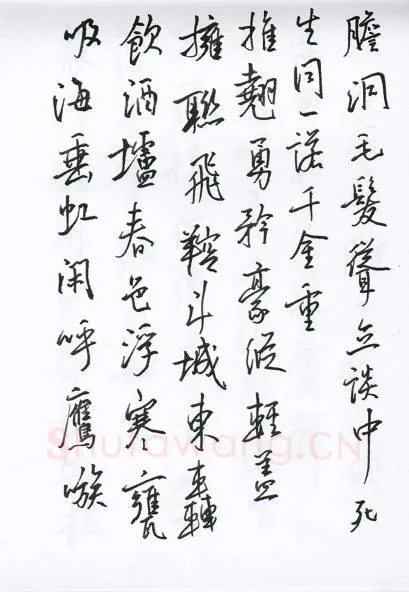 膽洞毛髮聳立談中死
生同一諾千金重
推翹勇矜豪縱輕蓋
擁聯飛鞚斗城東轟
飲酒壚春色浮寒甕
吸海垂虹閑呼鷹嗾
Shufawang.CN